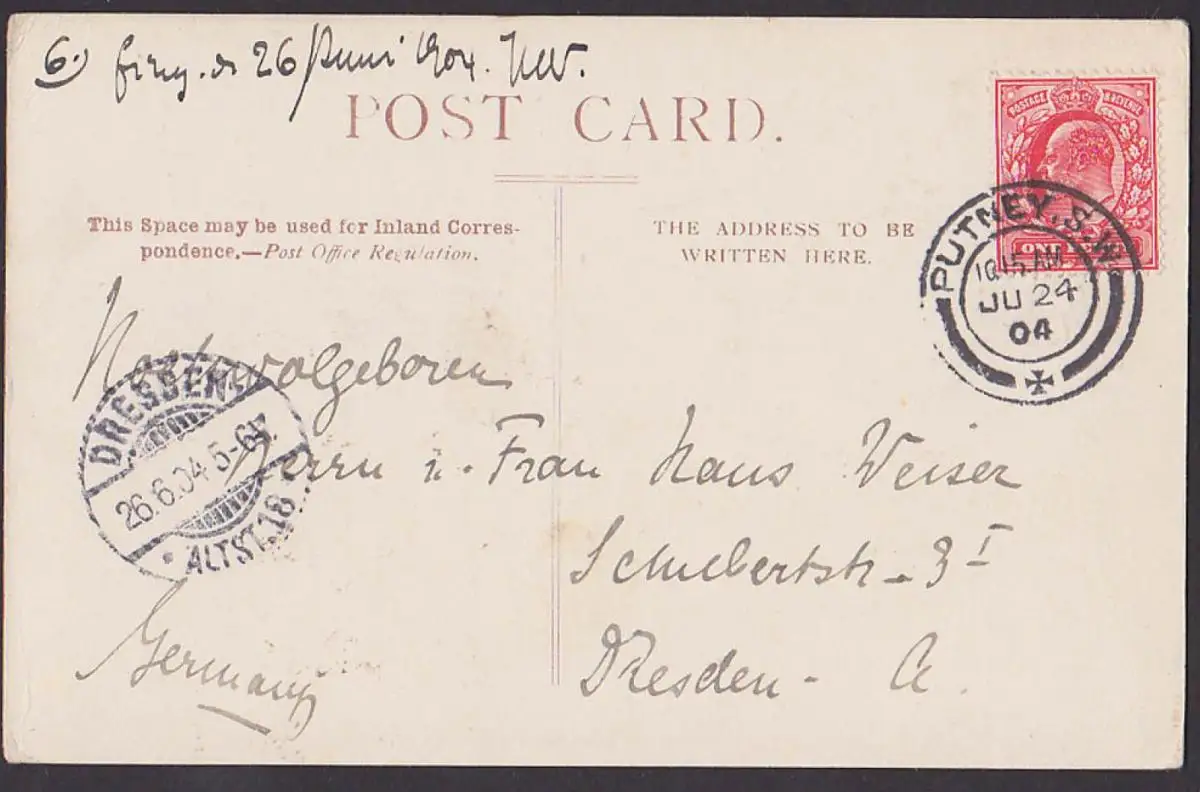 6.) eing. d 26 Juni 1904. HW.
POST CARD.
This Space may be used for Inland Corres-
pondence.—Post Office Regulation.
THE ADDRESS TO BE
WRITTEN HERE.
POSTAGE REVENUE
ONE
PUTNEY. S.W.
10.15 AM
JU 24
04
Hochwolgeboren
Herrn u. Frau Hans Weiser
Schubertstr. 3 I
Dresden - A.
Germany
DRESDEN
26.6.04.5-6N.
* ALTST. 18